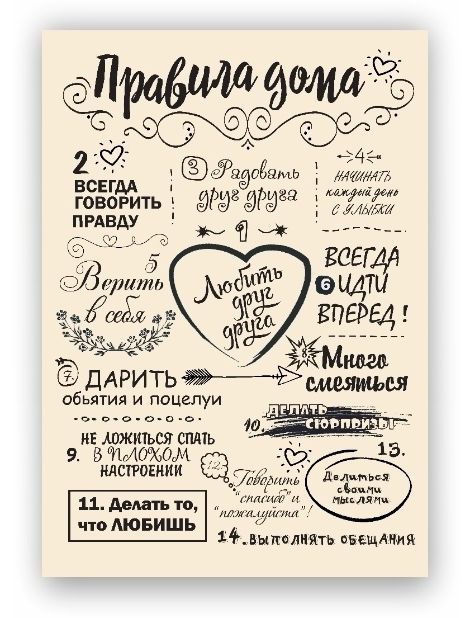 Правила дома
1
Любить
друг
друга
2
ВСЕГДА
ГОВОРИТЬ
ПРАВДУ
3 Радовать
друг друга
4
НАЧИНАТЬ
каждый день
С УЛЫБКИ
5
Верить
в себя
ВСЕГДА
6 ИДТИ
ВПЕРЕД!
7. ДАРИТЬ
обьятия и поцелуи
8. Много
смеяться
НЕ ЛОЖИТЬСЯ СПАТЬ
9. В ПЛОХОМ
НАСТРОЕНИИ
10. ДЕЛАТЬ
СЮРПРИЗЫ
11. Делать то,
что ЛЮБИШЬ
12. Говорить
"спасибо" и
"пожалуйста"!
13.
Делиться
своими
мыслями
14. ВЫПОЛНЯТЬ ОБЕЩАНИЯ